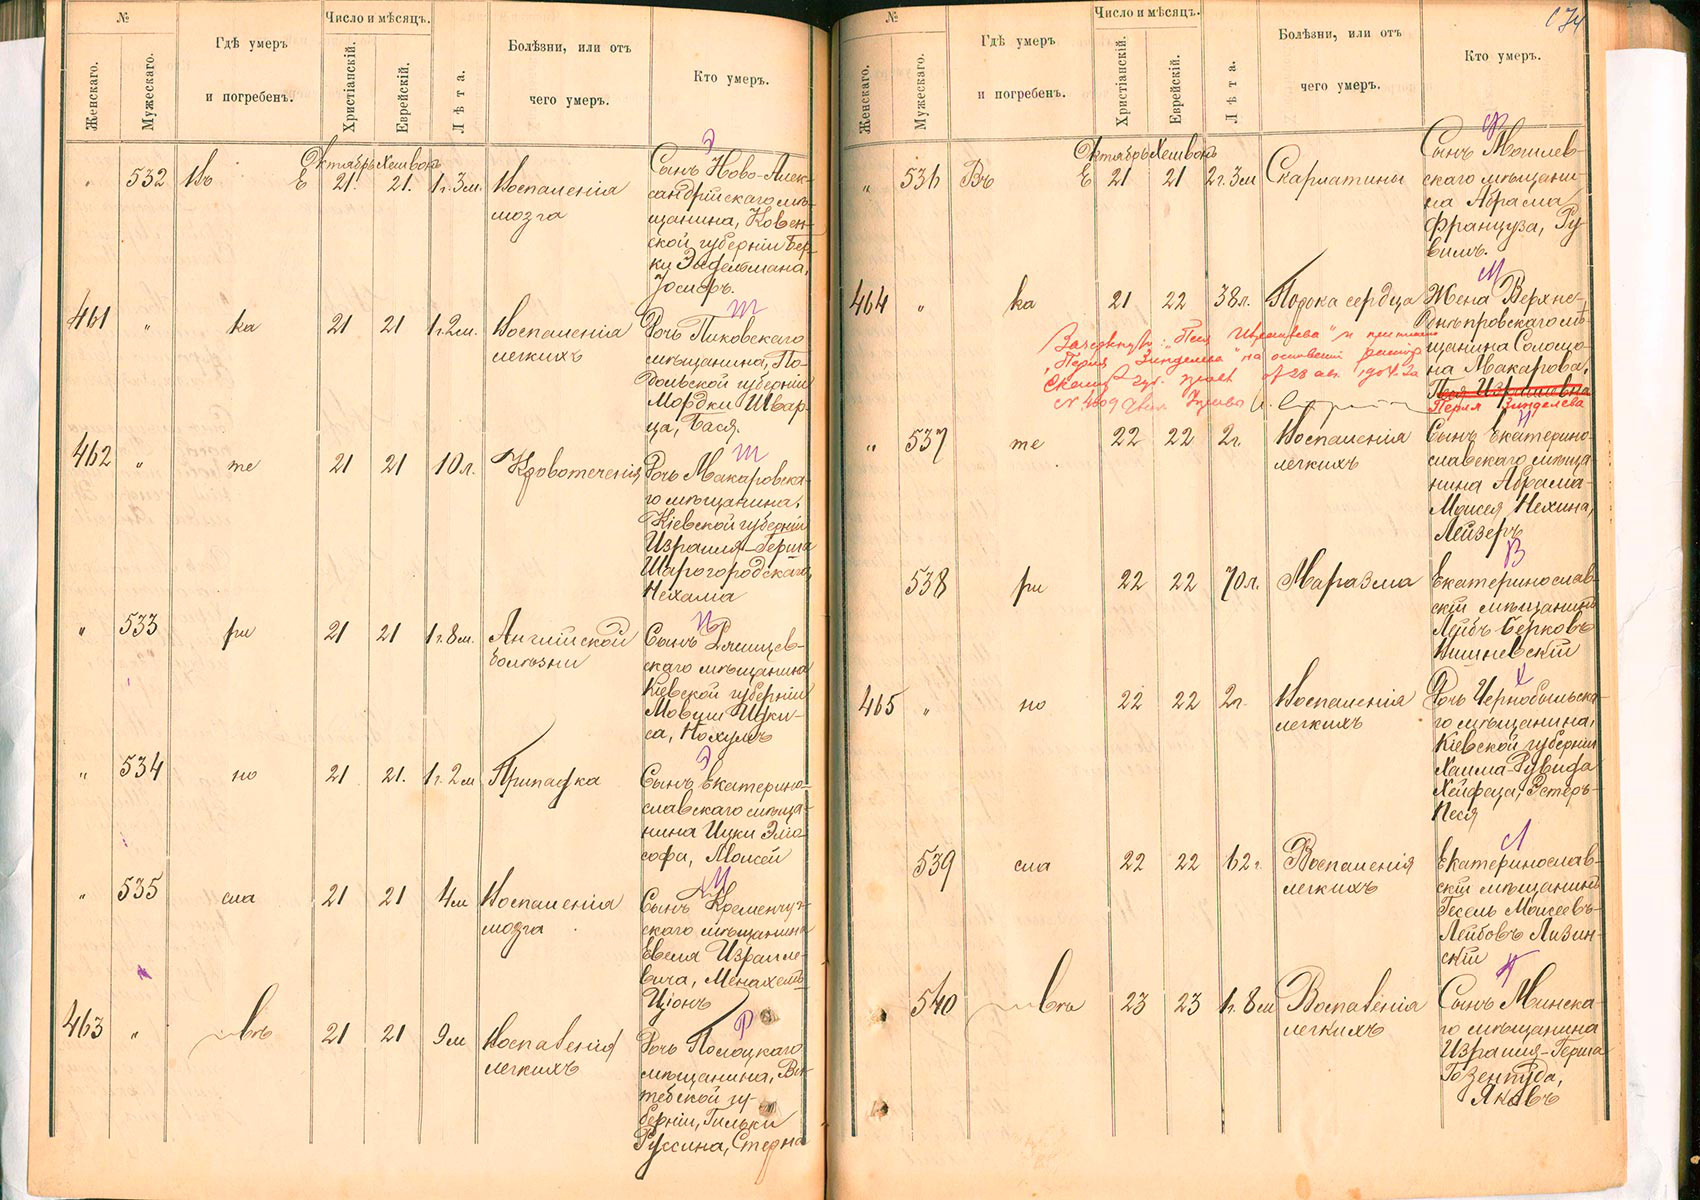 №
Женскаго.
Мужескаго.
Гдѣ умеръ
и погребенъ.
Число и мѣсяцъ.
Христіанскій.
Еврейскій.
Лѣта.
Болѣзни, или отъ
чего умеръ.
Кто умеръ.
Октябрь Хешвонъ
" 532 Въ Е 21. 21. 1 г. 3 м. Воспаленія
мозга
Сынъ Ново-Алек-
сандрійскаго мѣ-
щанина, Ковен-
ской губерніи Бер-
ки Эйдельмана,
Іосифъ.
461 " ка 21 21 1 г. 2 м. Воспаленія
легкихъ
Дочь Пиковскаго
мѣщанина, По-
дольской губерніи
Мордки Швар-
ца, Бася.
462 " те 21 21 10 л. Кровотеченія
Дочь Макаровска-
го мѣщанина,
Кіевской губерніи
Израиля-Герша
Шарогородскаго,
Нехама
" 533 ри 21 21 1 г. 8 м. Англійской
болѣзни
Сынъ Ржищев-
скаго мѣщанина
Кіевской губерніи
Мовши Цуки-
са, Нохумъ
" 534 но 21 21. 1 г. 2 м Припадка
Сынъ Екатерино-
славскаго мѣща-
нина Ицки
Моисей
" 535 сла 21 21 4 м Воспаленія
мозга
Сынъ Кременчуг-
скаго мѣщанина
Евеля Израиле-
вича, Менахемъ
Ціонъ
463 " въ 21 21 9 м Воспаленія
легкихъ
Дочь Полоцкаго
мѣщанина, Ви-
тебской гу-
берніи, Гильки
Руссина, Стерна
№
Женскаго.
Мужескаго.
Гдѣ умеръ
и погребенъ.
Число и мѣсяцъ.
Христіанскій.
Еврейскій.
Лѣта.
Болѣзни, или отъ
чего умеръ.
Кто умеръ.
Октябрь Хешвонъ
" 536 Въ Е 21 21 2 г. 3 м Скарлатины
Сынъ Могилев-
скаго мѣщани-
на Абрама
Француза, Ру-
вимъ.
464 " ка 21 22 38 л. Порока сердца
Жена Верхне-
Днѣпровскаго мѣ-
щанина Соломо-
на Макарова,
Песя Израилевна
Перля Зинделева
Зачеркнуто: „Песя Израилева" и
„Перля Зинделева" на основаніи
№ 4609
" 537 те 22 22 2 г. Воспаленія
легкихъ
Сынъ Екатерино-
славскаго мѣща-
нина Абрама-
Моисея Нехина,
Лейзеръ
538 ри 22 22 70 л. Маразма
Екатеринослав-
скій мѣщанинъ
Лейбъ Берковъ
Вишневскій
465 " но 22 22 2 г. Воспаленія
легкихъ
Дочь Чернобыльска-
го мѣщанина,
Кіевской губерніи
Хаима-Рувида
Хейфеца, Эстеръ-
Песя
539 сла 22 22 62 г. Воспаленія
легкихъ
Екатеринослав-
скій мѣщанинъ
Гесель Моисеевъ-
Лейбовъ Лизин-
скій
540 въ 23 23 1 г. 8 м Воспаленія
легкихъ
Сынъ Минска-
го мѣщанина
Израиля-Герша
Яковъ